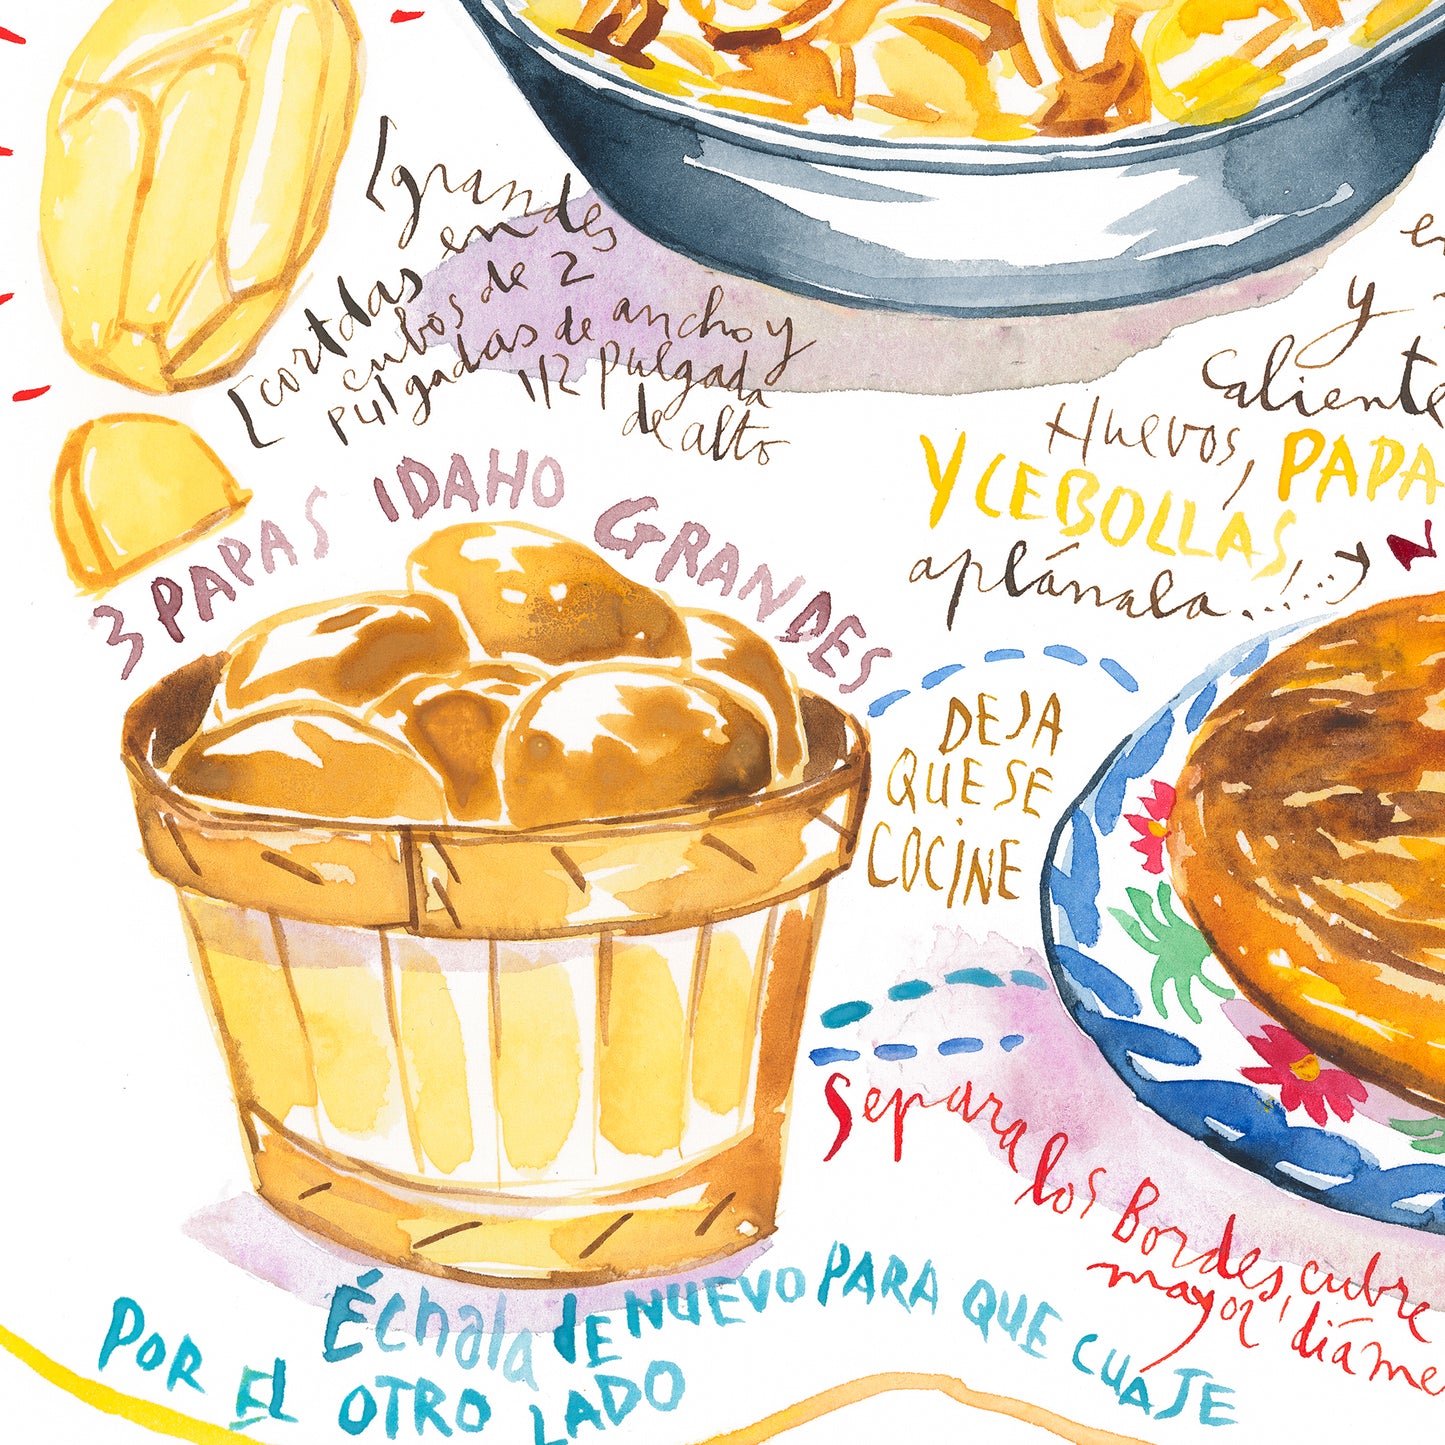 [grandes
[cortdas en
cubos de 2
pulgadas de ancho y
1/2 pulgada
de alto
y
Caliente
Huevos, PAPA
Y CEBOLLAS
aplánala.....y
3 PAPAS IDAHO GRANDES
DEJA
QUE SE
COCINE
Separa los Bordes, cubre
mayor diáme
Échala de NUEVO PARA QUE CUAJE
POR EL OTRO LADO